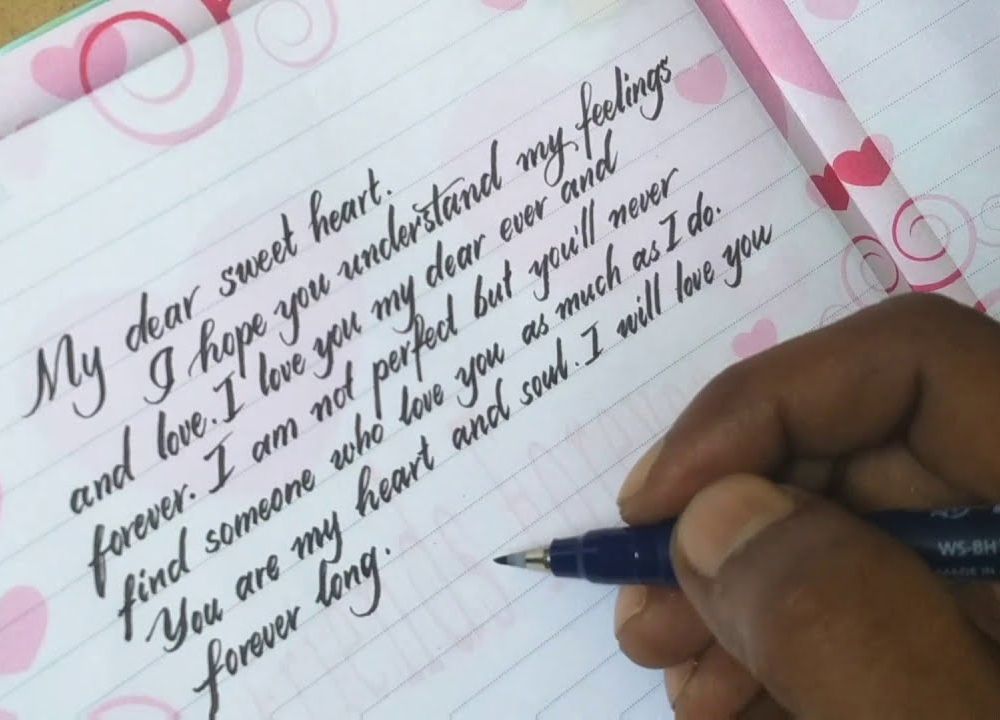 My dear sweet heart.
I hope you understand my feelings
and love. I love you my dear ever and
forever. I am not perfect but you'll never
find someone who love you as much as I do.
You are my heart and soul. I will love you
forever long.
WS-BH
MADE IN